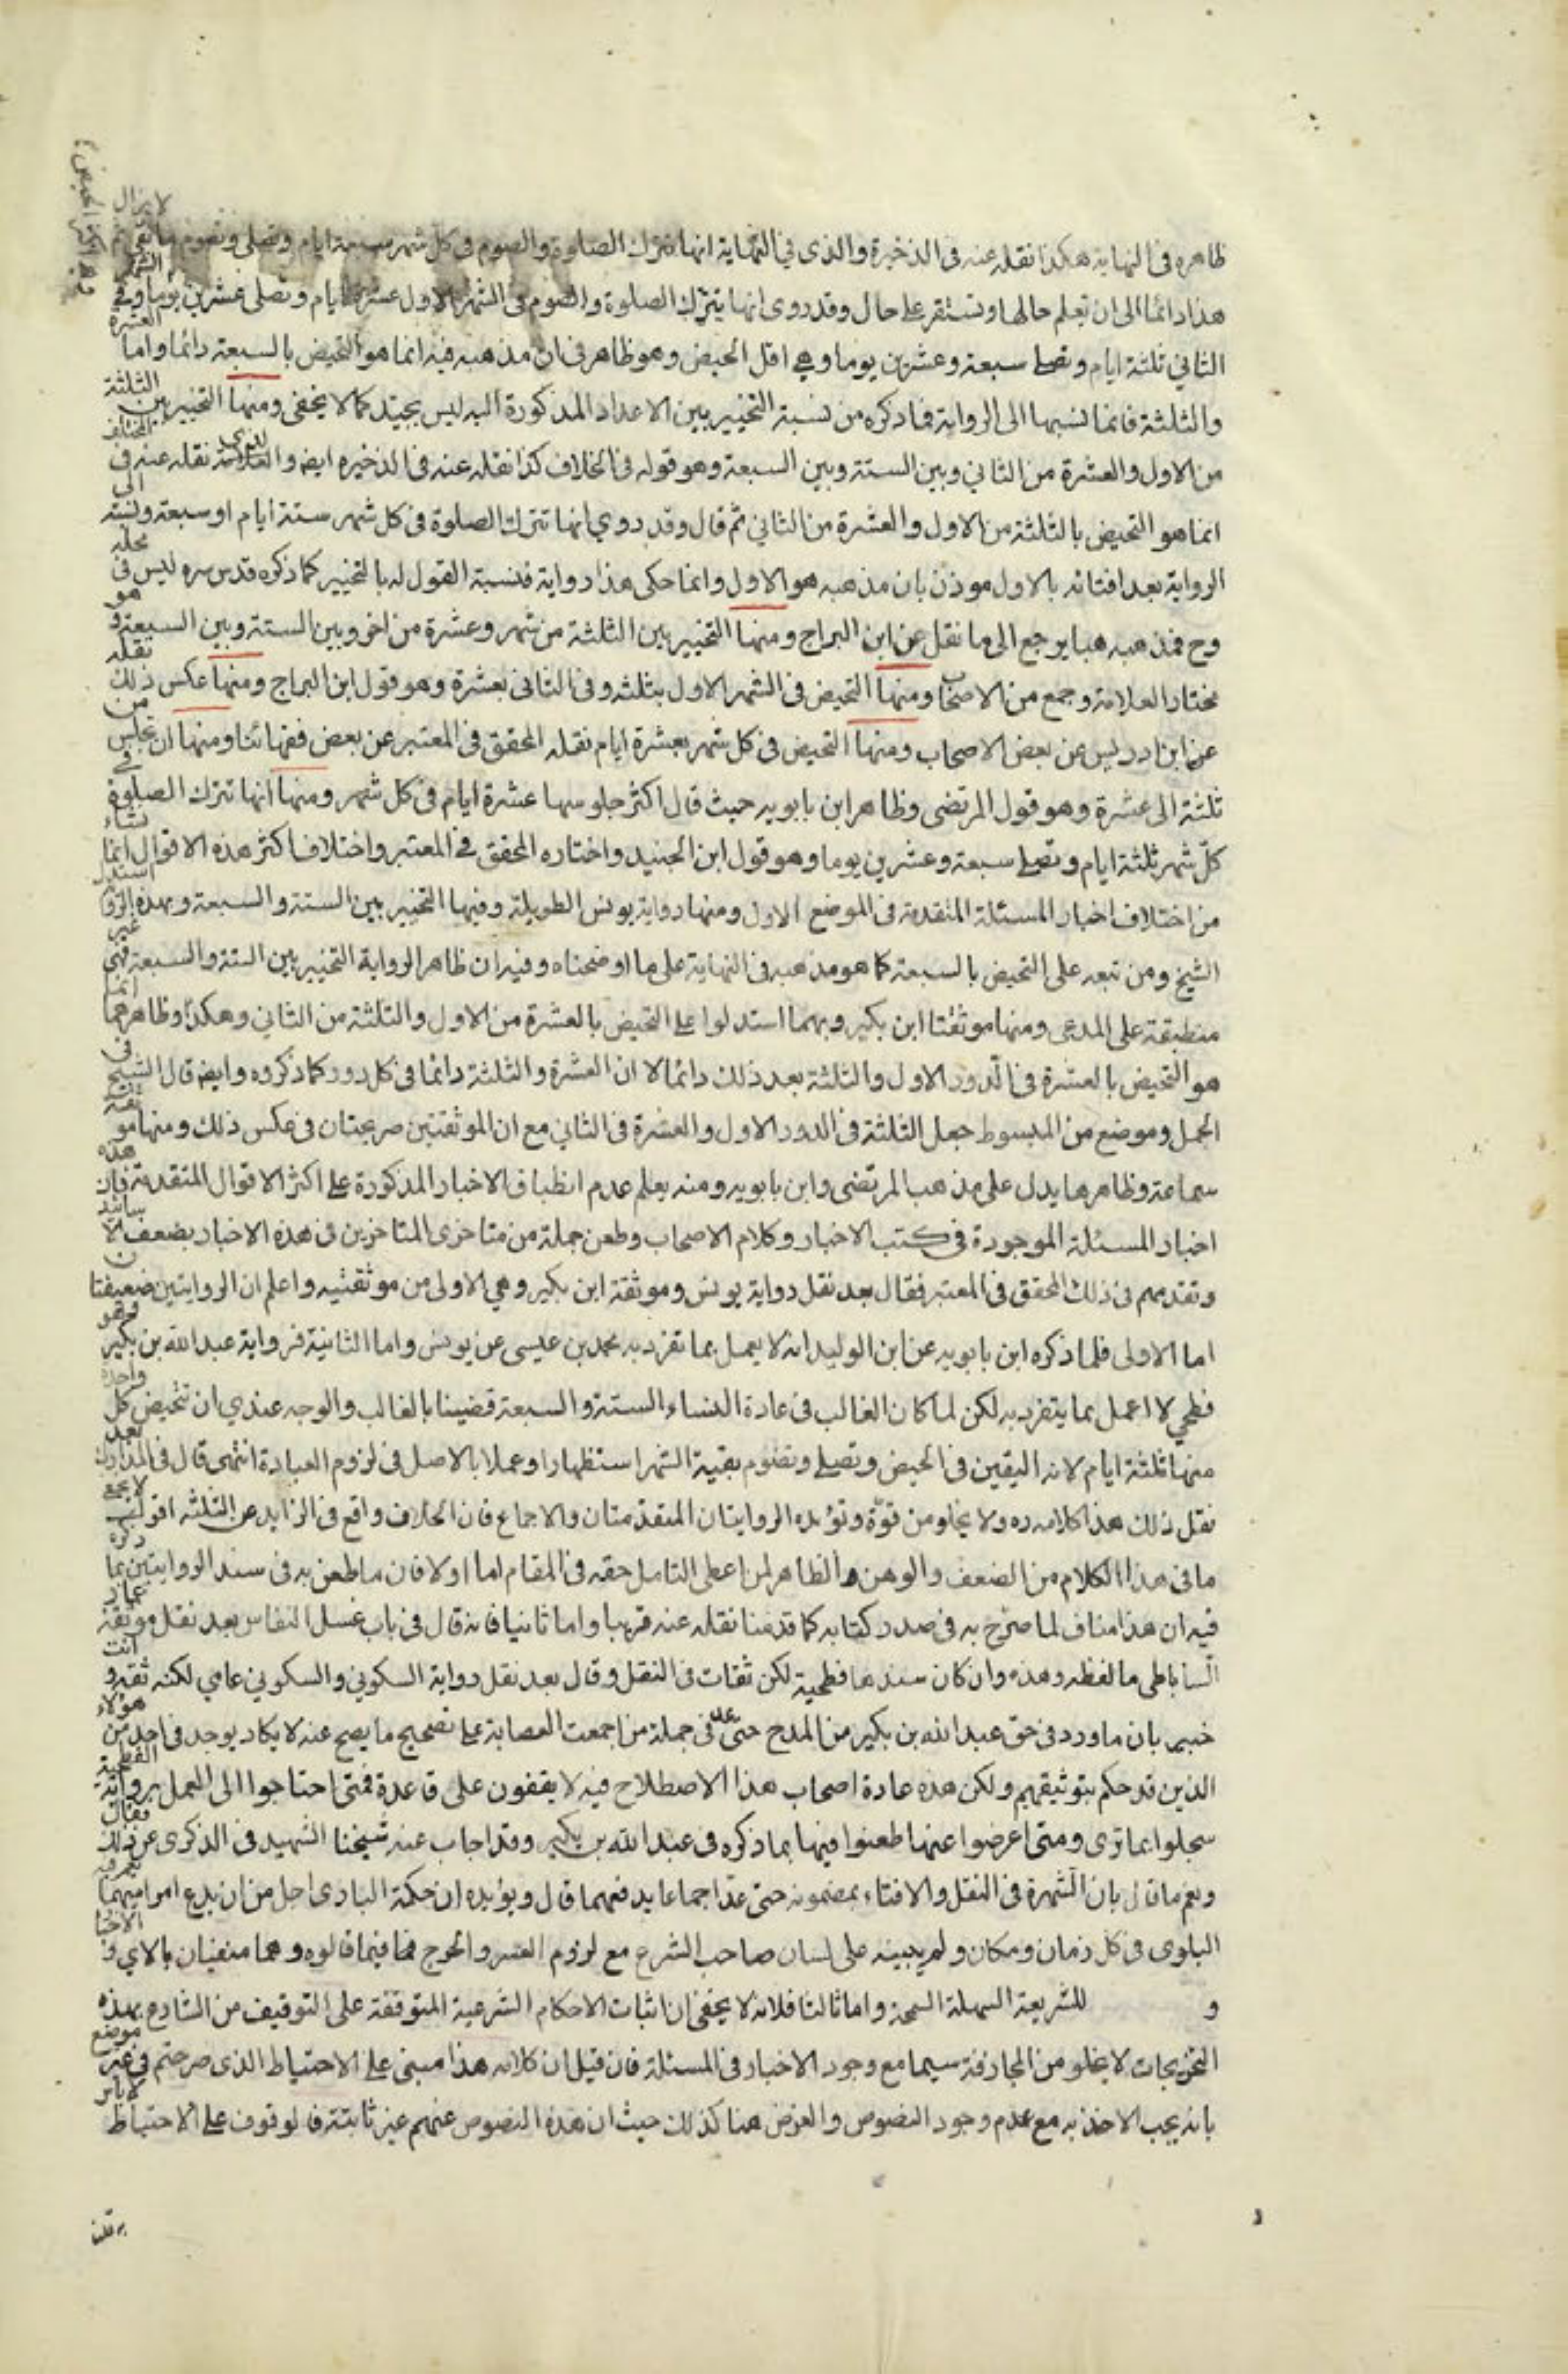 ظاهره في النهاية هكذا نقله عنه في الذخيرة والذى في النهاية انها تترك الصلوة والصوم في كل شهر سبعة ايام وتصلى وتصوم ما بقى ثم لا يزال
هذا دائما الى ان تعلم حالها وتستقر على حال وقد روى انها تترك الصلوة والصوم في الشهر الاول عشرة ايام وتصلى عشرين يوما وفي الشهر
الثاني ثلثة ايام وتصلي سبعة وعشرين يوما وهي اقل الحيض وهو ظاهر في ان مذهبه فيه انما هو التحيض بالسبعة دائما واما العشرة
والثلثة فانما نسبها الى الرواية فما ذكره من نسبة التخيير بين الاعداد المذكورة اليه ليس بجيد كما لا يخفى ومنها التخيير بين الثلثة
من الاول والعشرة من الثاني وبين الستة وبين السبعة وهو قوله في الخلاف كذا نقله عنه في الذخيره ايض والعلامة نقله عنه في المختلف
انما هو التحيض بالثلثة من الاول والعشرة من الثاني ثم قال وقد روي انها تترك الصلوة في كل شهر ستة ايام او سبعة ونسبته الى
الرواية بعد افتائه بالاول موذن بان مذهبه هو الاول وانما حكى هذا رواية فنسبة القول له بالتخيير كما ذكره قدس سره ليس في محله
وح فمذهبه هنا يرجع الى ما نقل عن ابن البراج ومنها التخيير بين الثلثة من شهر وعشرة من اخر وبين الستة وبين السبعة وهو
مختار العلامة وجمع من الاصحاب ومنها التحيض في الشهر الاول بثلثه وفي الثاني بعشرة وهو قول ابن البراج ومنها عكس ذلك نقله
عن ابن ادريس عن بعض الاصحاب ومنها التحيض في كل شهر بعشرة ايام نقله المحقق في المعتبر عن بعض فقهائنا ومنها ان تجلس من
ثلثة الى عشرة وهو قول المرتضى وظاهر ابن بابويه حيث قال اكثر جلوسها عشرة ايام في كل شهر ومنها انها تترك الصلوة في
كل شهر ثلثة ايام وتصلي سبعة وعشرين يوما وهو قول ابن الجنيد واختاره المحقق في المعتبر واختلاف اكثر هذه الاقوال انما نشاء
من اختلاف اخبار المسئلة المتقدمة في الموضع الاول ومنها رواية يونس الطويلة وفيها التخيير بين الستة والسبعة وبهذه الرواية استدل
الشيخ ومن تبعه على التحيض بالسبعة كما هو مذهبه في النهاية على ما اوضحناه وفيه ان ظاهر الرواية التخيير بين الستة والسبعة فهى غير
منطبقة على المدعى ومنها موثقتا ابن بكير وبهما استدلوا على التحيض بالعشرة من الاول والثلثة من الثاني وهكذا وظاهرهما انما
هو التحيض بالعشرة في الدور الاول والثلثة بعد ذلك دائما لا ان العشرة والثلثة دائما في كل دور كما ذكروه وايضا قال الشيخ في
الجمل وموضع من المبسوط جعل الثلثة في الدور الاول والعشرة في الثاني مع ان الموثقتين صريحتان في عكس ذلك ومنها موثقة
سماعة وظاهرها يدل على مذهب المرتضى وابن بابويه ومنه يعلم عدم انطباق الاخبار المذكورة على اكثر الاقوال المتقدمة فان هذه
اخبار المسئلة الموجودة في كتب الاخبار وكلام الاصحاب وطعن جملة من متاخرى المتاخرين في هذه الاخبار بضعف الاسانيد
وتقدمهم في ذلك المحقق في المعتبر فقال بعد نقل رواية يونس وموثقة ابن بكير وهي الاولى من موثقتيه واعلم ان الروايتين ضعيفتان
اما الاولى فلما ذكره ابن بابويه عن ابن الوليد انه لا يعمل بما تفرد به محمد بن عيسى عن يونس واما الثانية فرواية عبدالله بن بكير وهو
فطحي لا اعمل بما يتفرد به لكن لما كان الغالب في عادة النساء الستة والسبعة قضينا بالغالب والوجه عندي ان تتحيض كل واحدة
منها ثلثة ايام لانه اليقين في الحيض وتصلي وتصوم بقية الشهر استظهارا وعملا بالاصل في لزوم العبادة انتهى قال في المدارك بعد
نقل ذلك هذا كلامه ره ولا يخلو من قوة وتؤيده الروايتان المتقدمتان والاجماع فان الخلاف واقع في الزايد عن الثلثه اقول لا يخفى
ما في هذا الكلام من الضعف والوهن الظاهر لمن اعطى التامل حقه في المقام اما اولا فان ما طعن به في سند الروايتين بما ذكره
فيه ان هذا مناف لما صرح به في صدر كتابه كما قدمنا نقله عنه قريبا واما ثانيا فانه قال في باب غسل النفاس بعد نقل موثقة عمار
الساباطى ما لفظه وهذه وان كان سندها فطحية لكن ثقات في النقل وقال بعد نقل رواية السكوني والسكوني عامي لكنه ثقه وانت
خبير بان ما ورد في حق عبدالله بن بكير من المدح حتى عد في جملة من اجمعت العصابة على تصحيح ما يصح عنه لا يكاد يوجد في احد من هؤلاء
الذين قد حكم بتوثيقهم ولكن هذه عادة اصحاب هذا الاصطلاح فيه لا يقفون على قاعدة فمتى احتاجوا الى العمل برواية الفطحية
سجلوا بما ترى ومتى اعرضوا عنها طعنوا فيها بما ذكره في عبدالله بن بكير وقد اجاب عنه شيخنا الشهيد في الذكرى عن ذلك فقال
ونعم ما قال بان الشهرة في النقل والافتاء بمضمونه حتى عد اجماعا يدفعهما قال ويؤيده ان حكمة البارى اجل من ان يدع امرا مبهما تعم به
البلوى في كل زمان ومكان ولم يبينه على لسان صاحب الشرع مع لزوم العسر والحرج فما فيما قالوه وهما منفيان بالاي والاخبار
و للشريعة السهلة السمحة واما ثالثا فلانه لا يخفى ان اثبات الاحكام الشرعية المتوقفة على التوقيف من الشارع بهذه
التخريجات لا يخلو من المجازفة سيما مع وجود الاخبار في المسئلة فان قيل ان كلامه هذا مبنى على الاحتياط الذى صرحتم في غير موضع
بانه يجب الاخذ به مع عدم وجود النصوص والفرض هنا كذلك حيث ان هذه النصوص عندهم غير ثابتة فالوقوف على الاحتياط لا باس
به قلنا